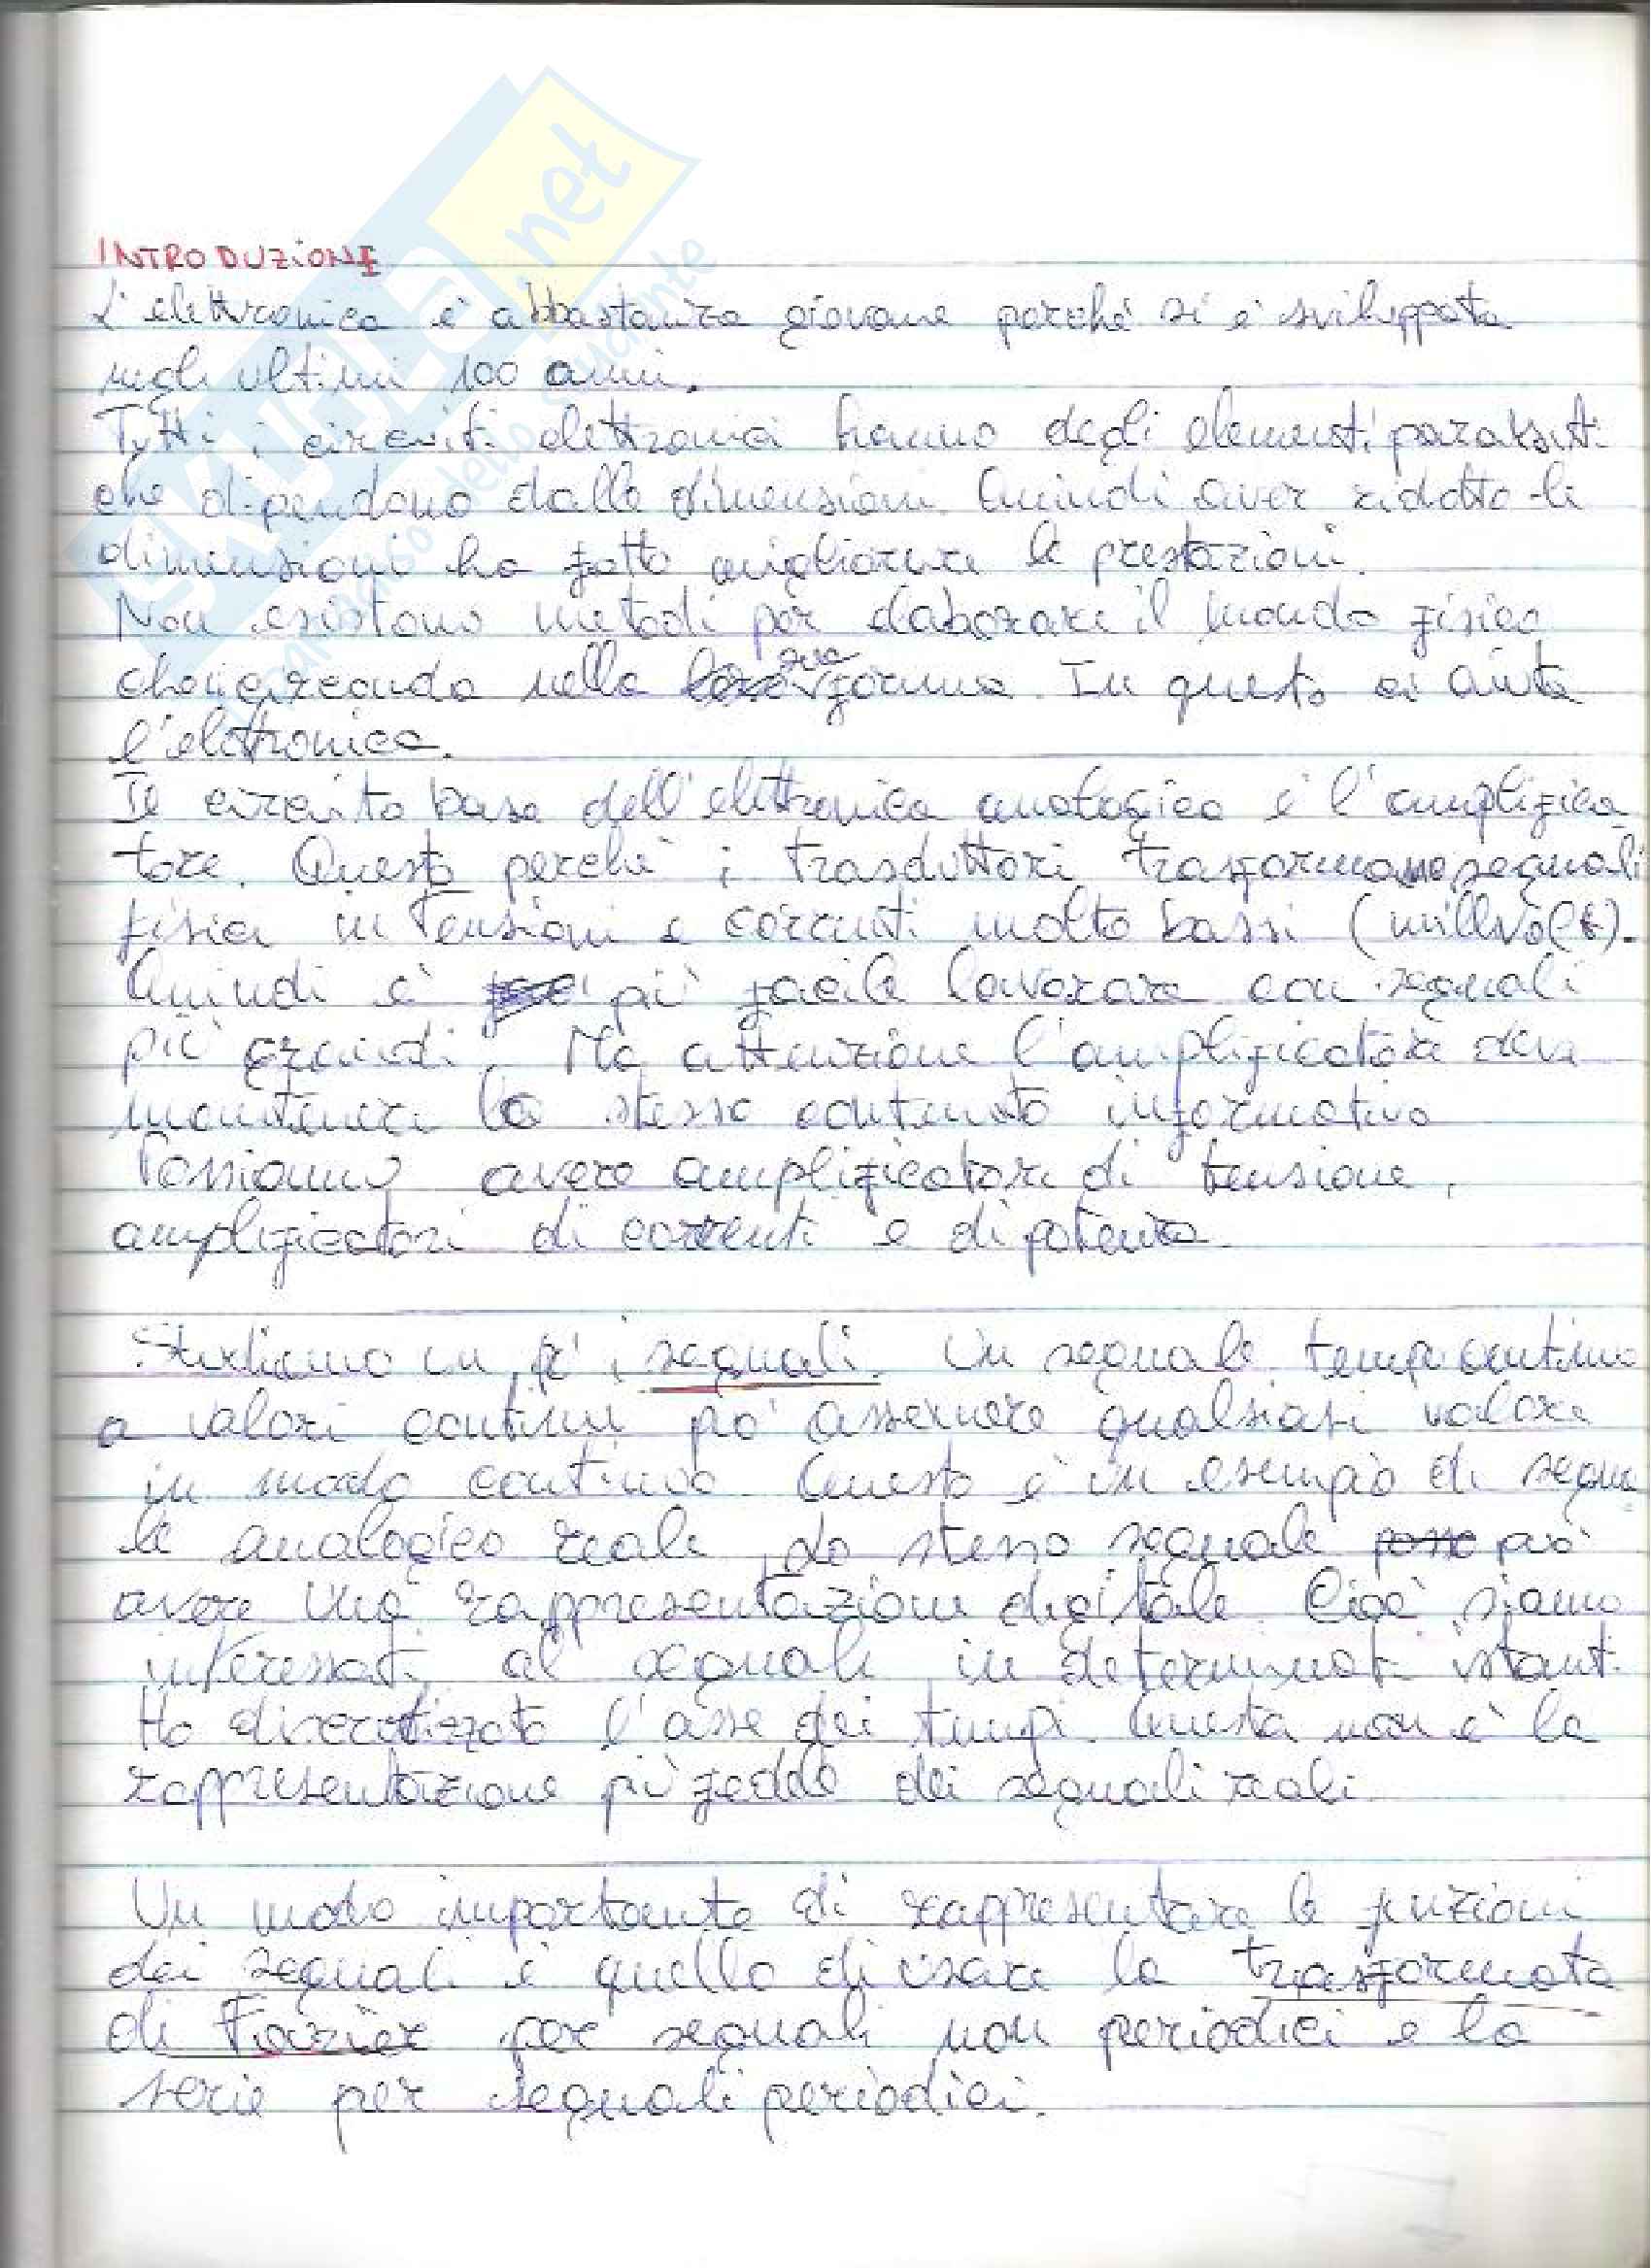 SKUOLA.net
il paradiso dello studente
INTRODUZIONE
L'elettronica è abbastanza giovane perché si è sviluppata
negli ultimi 100 anni.
Tutti i circuiti elettronici hanno degli elementi parassiti
che dipendono dalle dimensioni. Quindi aver ridotto le
dimensioni ha fatto migliorare le prestazioni.
Non esistono metodi per elaborare il mondo fisico
che ci circonda nella sua forma. In questo ci aiuta
l'elettronica.
Il circuito base dell'elettronica analogica è l'amplifica
tore. Questo perché i trasduttori trasformano segnali
fisici in tensioni e correnti molto bassi (millivolt).
Quindi è più facile lavorare con segnali
più grandi. Ma attenzione l'amplificatore deve
mantenere lo stesso contenuto informativo
Possiamo avere amplificatori di tensione,
amplificatori di correnti e di potenza.
Studiamo un po' i segnali. Un segnale tempo continuo
a valori continui può assumere qualsiasi valore
in modo continuo. Questo è un esempio di segna
le analogico reale. Lo stesso segnale può
avere una rappresentazione digitale. Cioè siamo
interessati al segnale in determinati istanti.
Ho discretizzato l'asse dei tempi. Questa non è la
rappresentazione più fedele dei segnali reali.
Un modo importante di rappresentare le funzioni
dei segnali è quello di usare la trasformata
di Fourier per segnali non periodici e la
serie per segnali periodici.